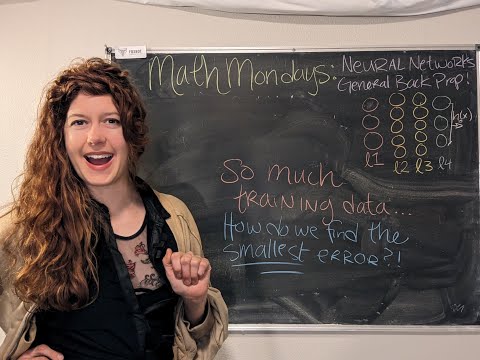 Math Mondays:
NEURAL NETWORKS
General Back Prop!
h(x)
l1 l2 l3 l4
So much
training data...
How do we find the
smallest ERROR?!